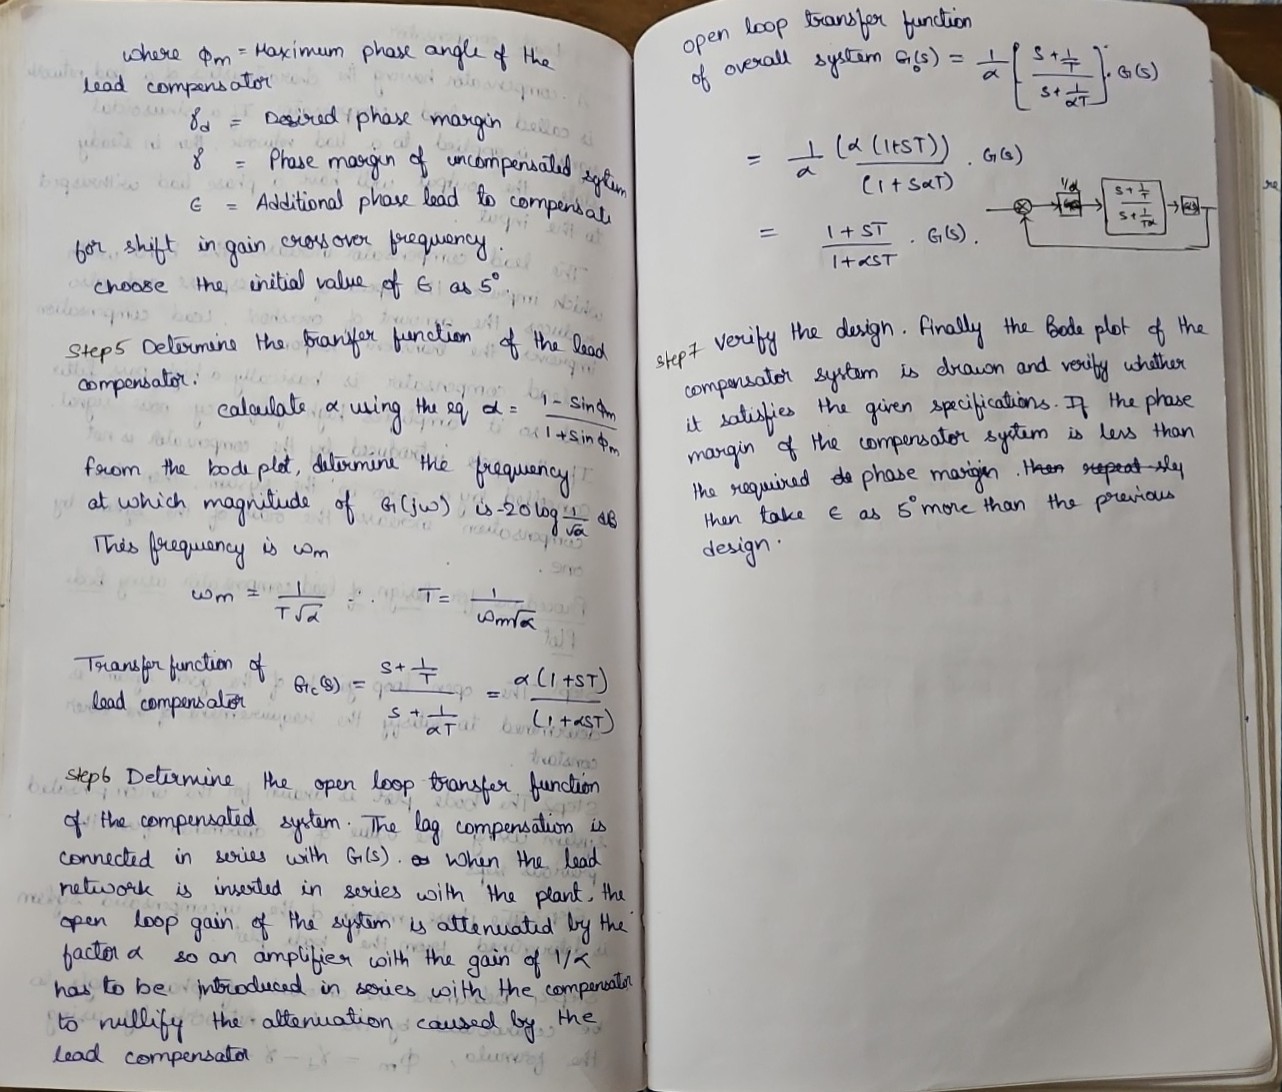 where ϕm = Maximum phase angle of the
lead compensator
γd = Desired phase margin
γ = Phase margin of uncompensated system
ϵ = Additional phase lead to compensate
for shift in gain crossover frequency.
choose the initial value of ϵ as 5°.
Step5 Determine the transfer function of the lead
compensator.
calculate α using the eq α = (1 - sinϕm)/(1 + sinϕm)
from the bode plot, determine the frequency
at which magnitude of G(jω) is -20 log 1/√α dB
This frequency is ωm
ωm = 1/(T√α) ∴ T = 1/(ωm√α)
Transfer function of
lead compensator Gc(s) = (s + 1/T)/(s + 1/αT) = α(1+sT)/(1+αsT)
Step6 Determine the open loop transfer function
of the compensated system. The lag compensation is
connected in series with G(s). When the lead
network is inserted in series with the plant, the
open loop gain of the system is attenuated by the
factor α so an amplifier with the gain of 1/α
has to be introduced in series with the compensator
to nullify the attenuation caused by the
lead compensator
open loop transfer function
of overall system G₀(s) = 1/α [(s + 1/T)/(s + 1/αT)] . G(s)
= 1/α (α(1+sT))/(1+sαT) . G(s)
= (1+sT)/(1+αsT) . G(s).
1/α (s + 1/T)/(s + 1/Tα)
Step7 verify the design. finally the Bode plot of the
compensator system is drawn and verify whether
it satisfies the given specifications. If the phase
margin of the compensator system is less than
the required phase margin . then repeat
then take ϵ as 5° more than the previous
design.